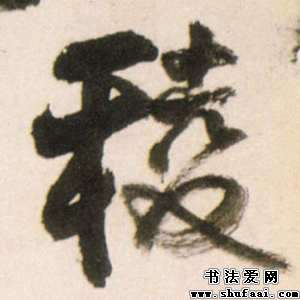 稜
书法爱网
www.shufaai.com